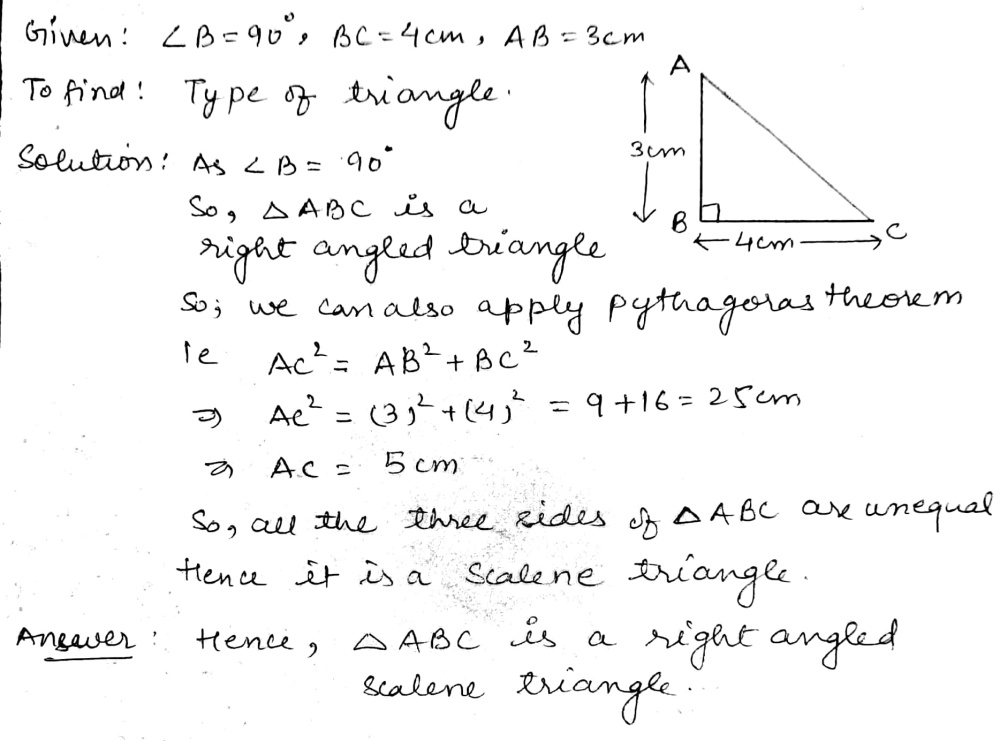 Given: ∠B = 90°, BC = 4cm, AB = 3cm
To find: Type of triangle.
A
3cm
B
4cm
C
Solution: As ∠B = 90°
So, △ABC is a
right angled triangle
So; we can also apply pythagoras theorem
ie AC² = AB² + BC²
⇒ AC² = (3)² + (4)² = 9 + 16 = 25cm
⇒ AC = 5cm
So, all the three sides of △ABC are unequal
Hence it is a Scalene triangle.
Answer: Hence, △ABC is a right angled
scalene triangle.